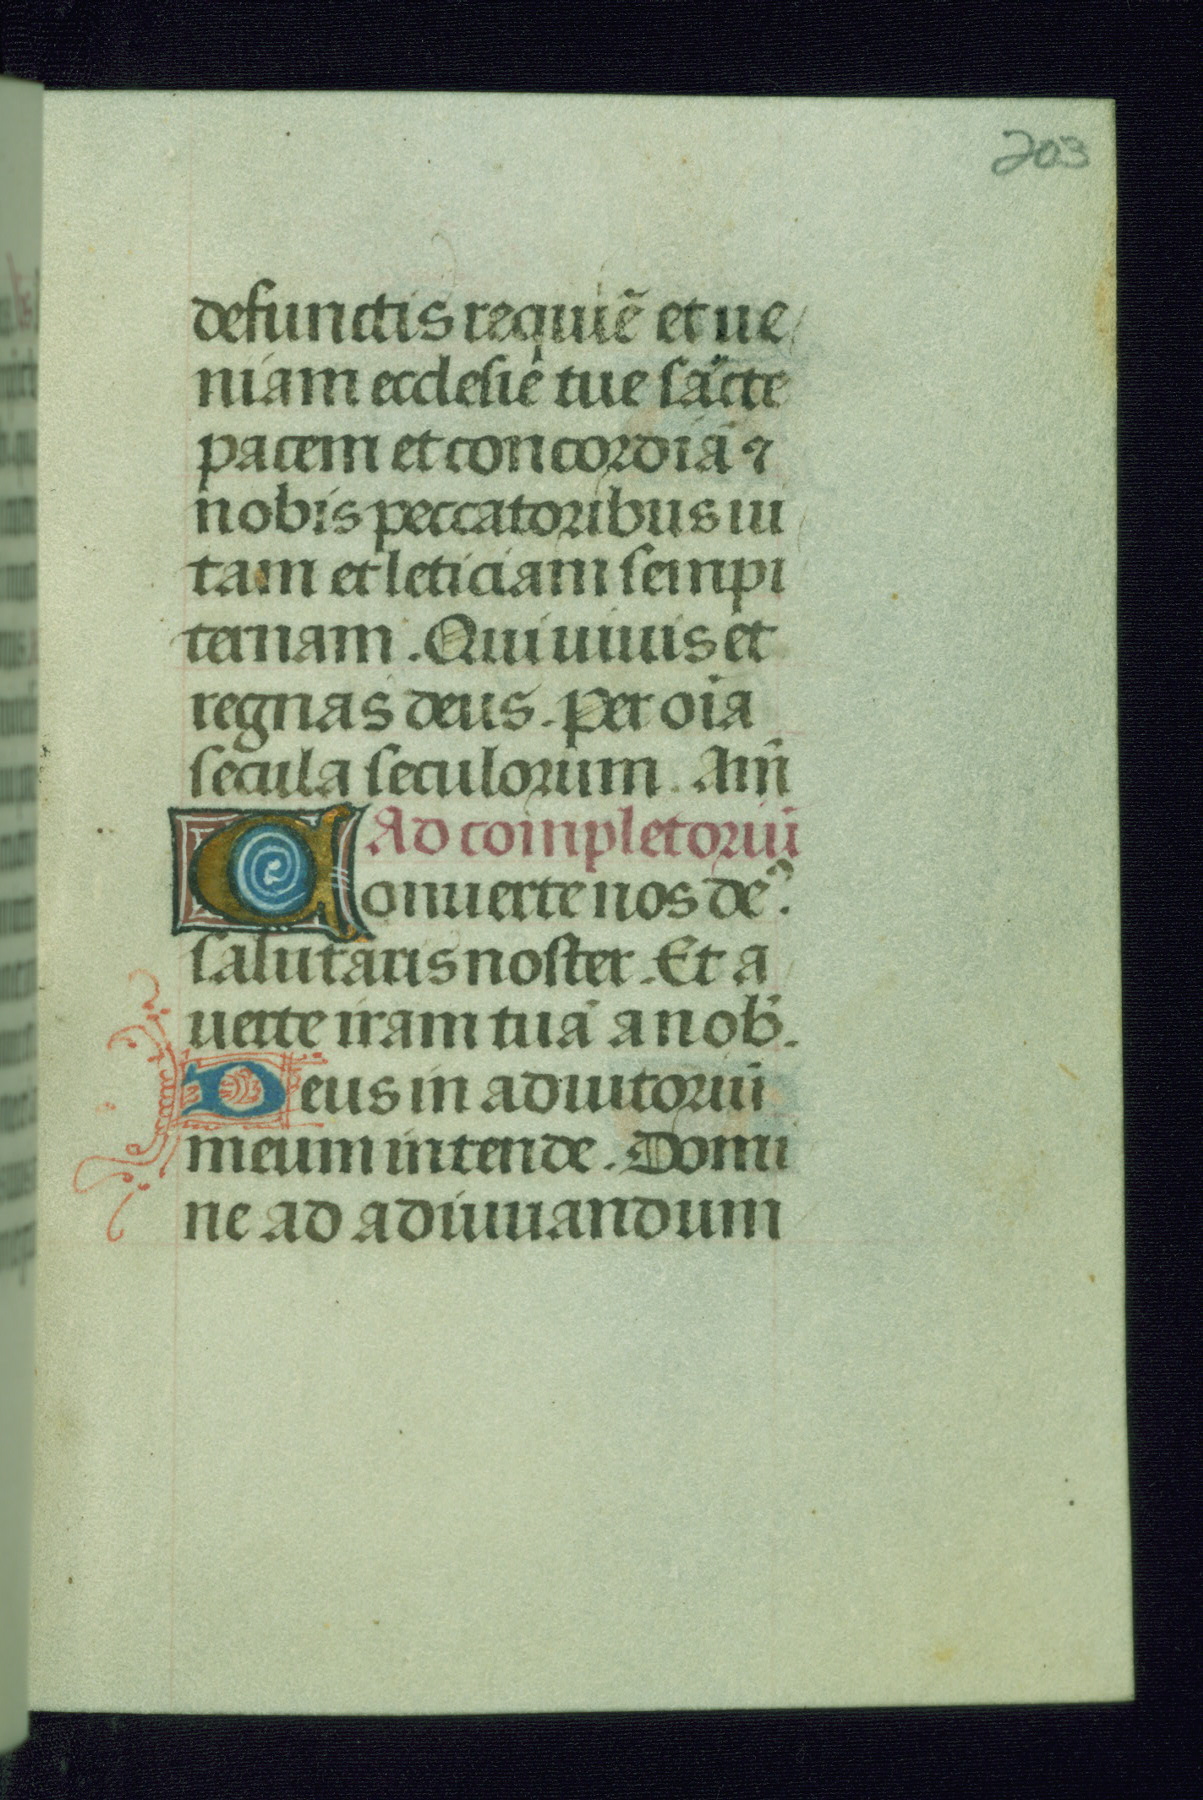 203
defunctis requiē et ue
niam ecclesie tue sācte
pacem et concordiā ⁊
nobis peccatoribus ui
tam et leticiam sempi
ternam. Qui uiuis et
regnas deus. Per oīa
secula seculorum. Am̄
Ad completoriū
Conuerte nos deꝰ.
salutaris noster. Et a
uerte iram tuā a nob̄.
Deus in adiutoriū
meum intende. Domi
ne ad adiuuandum